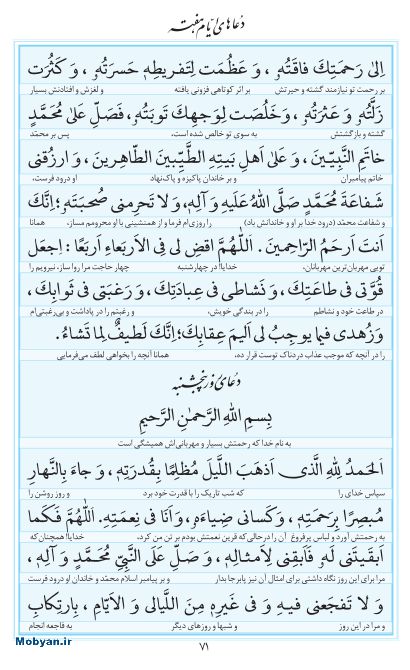 دعاهای ایام هفته
اِلىٰ رَحمَتِكَ فاقَتُهُ، وَ عَظُمَت لِتَفريطِهٖ حَسرَتُهُ، وَ كَثُرَت
بر رحمت تو نیازمند گشته و حیرتش بر اثر کوتاهی فزونی یافته و لغزش و افتادنش بسیار
زَلَّتُهُ وَ عَثرَتُهُ، وَ خَلُصَت لِوَجهِكَ تَوبَتُهُ، فَصَلِّ عَلىٰ مُحَمَّدٍ
گشته و بازگشتش به سوی تو خالص شده است، پس بر محمّد
خاتَمِ النَّبِيّينَ، وَ عَلىٰ اَهلِ بَيتِهِ الطَّيِّبينَ الطّاهِرينَ، وَ ارزُقنى
خاتم پیامبران و بر خاندان پاکیزه و پاک‌نهاد او درود فرست،
شَفاعَةَ مُحَمَّدٍ صَلَّى اللهُ عَلَيهِ وَ آلِهٖ، وَ لا تَحرِمنى صُحبَتَهُ؛ اِنَّكَ
و شفاعت محمّد (درود خدا بر او و خاندانش باد) را روزی‌ام فرما و از همنشینی با او محرومم مساز، همانا
اَنتَ اَرحَمُ الرّاحِمينَ. اَللّٰهُمَّ اقضِ لى فِى الاَربَعاءِ اَربَعًا: اِجعَل
تویی مهربان‌ترین مهربانان، خدایا! در چهارشنبه چهار حاجت مرا روا ساز، نیرویم را
قُوَّتى فى طاعَتِكَ، وَ نَشاطى فى عِبادَتِكَ، وَ رَغبَتى فى ثَوابِكَ،
در طاعت خود و نشاطم را در بندگی خویش، و رغبتم را در پاداشت و بی‌رغبتی‌ام
وَ زُهدى فيما يوجِبُ لى اَليمَ عِقابِكَ؛ اِنَّكَ لَطيفٌ لِما تَشاءُ.
را در آنچه که موجب عذاب دردناک توست قرار ده، همانا آنچه را بخواهی لطف می‌فرمایی
دعای روز پنجشنبه
بِسمِ اللهِ الرَّحمٰنِ الرَّحيمِ
به نام خدا که رحمتش بسیار و مهربانی‌اش همیشگی است
اَلحَمدُ لِلّٰهِ الَّذى اَذهَبَ اللَّيلَ مُظلِمًا بِقُدرَتِهٖ، وَ جاءَ بِالنَّهارِ
سپاس خدای را که شب تاریک را با قدرت خود برد و روز روشن را
مُبصِرًا بِرَحمَتِهٖ، وَ كَسانى ضِياءَهُ، وَ اَنَا فى نِعمَتِهٖ. اَللّٰهُمَّ فَكَما
به رحمتش آورد و لباس پرفروغ آن را درحالی‌که قرین نعمتش بودم بر تن من کرد، خدایا! همچنان که
اَبقَيتَنى لَهُ فَاَبقِنى لِاَمثالِهٖ، وَ صَلِّ عَلَى النَّبِىِّ مُحَمَّدٍ وَ آلِهٖ،
مرا برای این روز نگاه داشتی برای امثال آن نیز پابرجا بدار و بر پیامبر اسلام محمّد و خاندان او درود فرست
وَ لا تَفجَعنى فيهِ وَ فى غَيرِهٖ مِنَ اللَّيالى وَ الاَيّامِ، بِارتِكابِ
و مرا در این روز و شبها و روزهای دیگر به فاجعه انجام
۷۱
Mobyan.ir